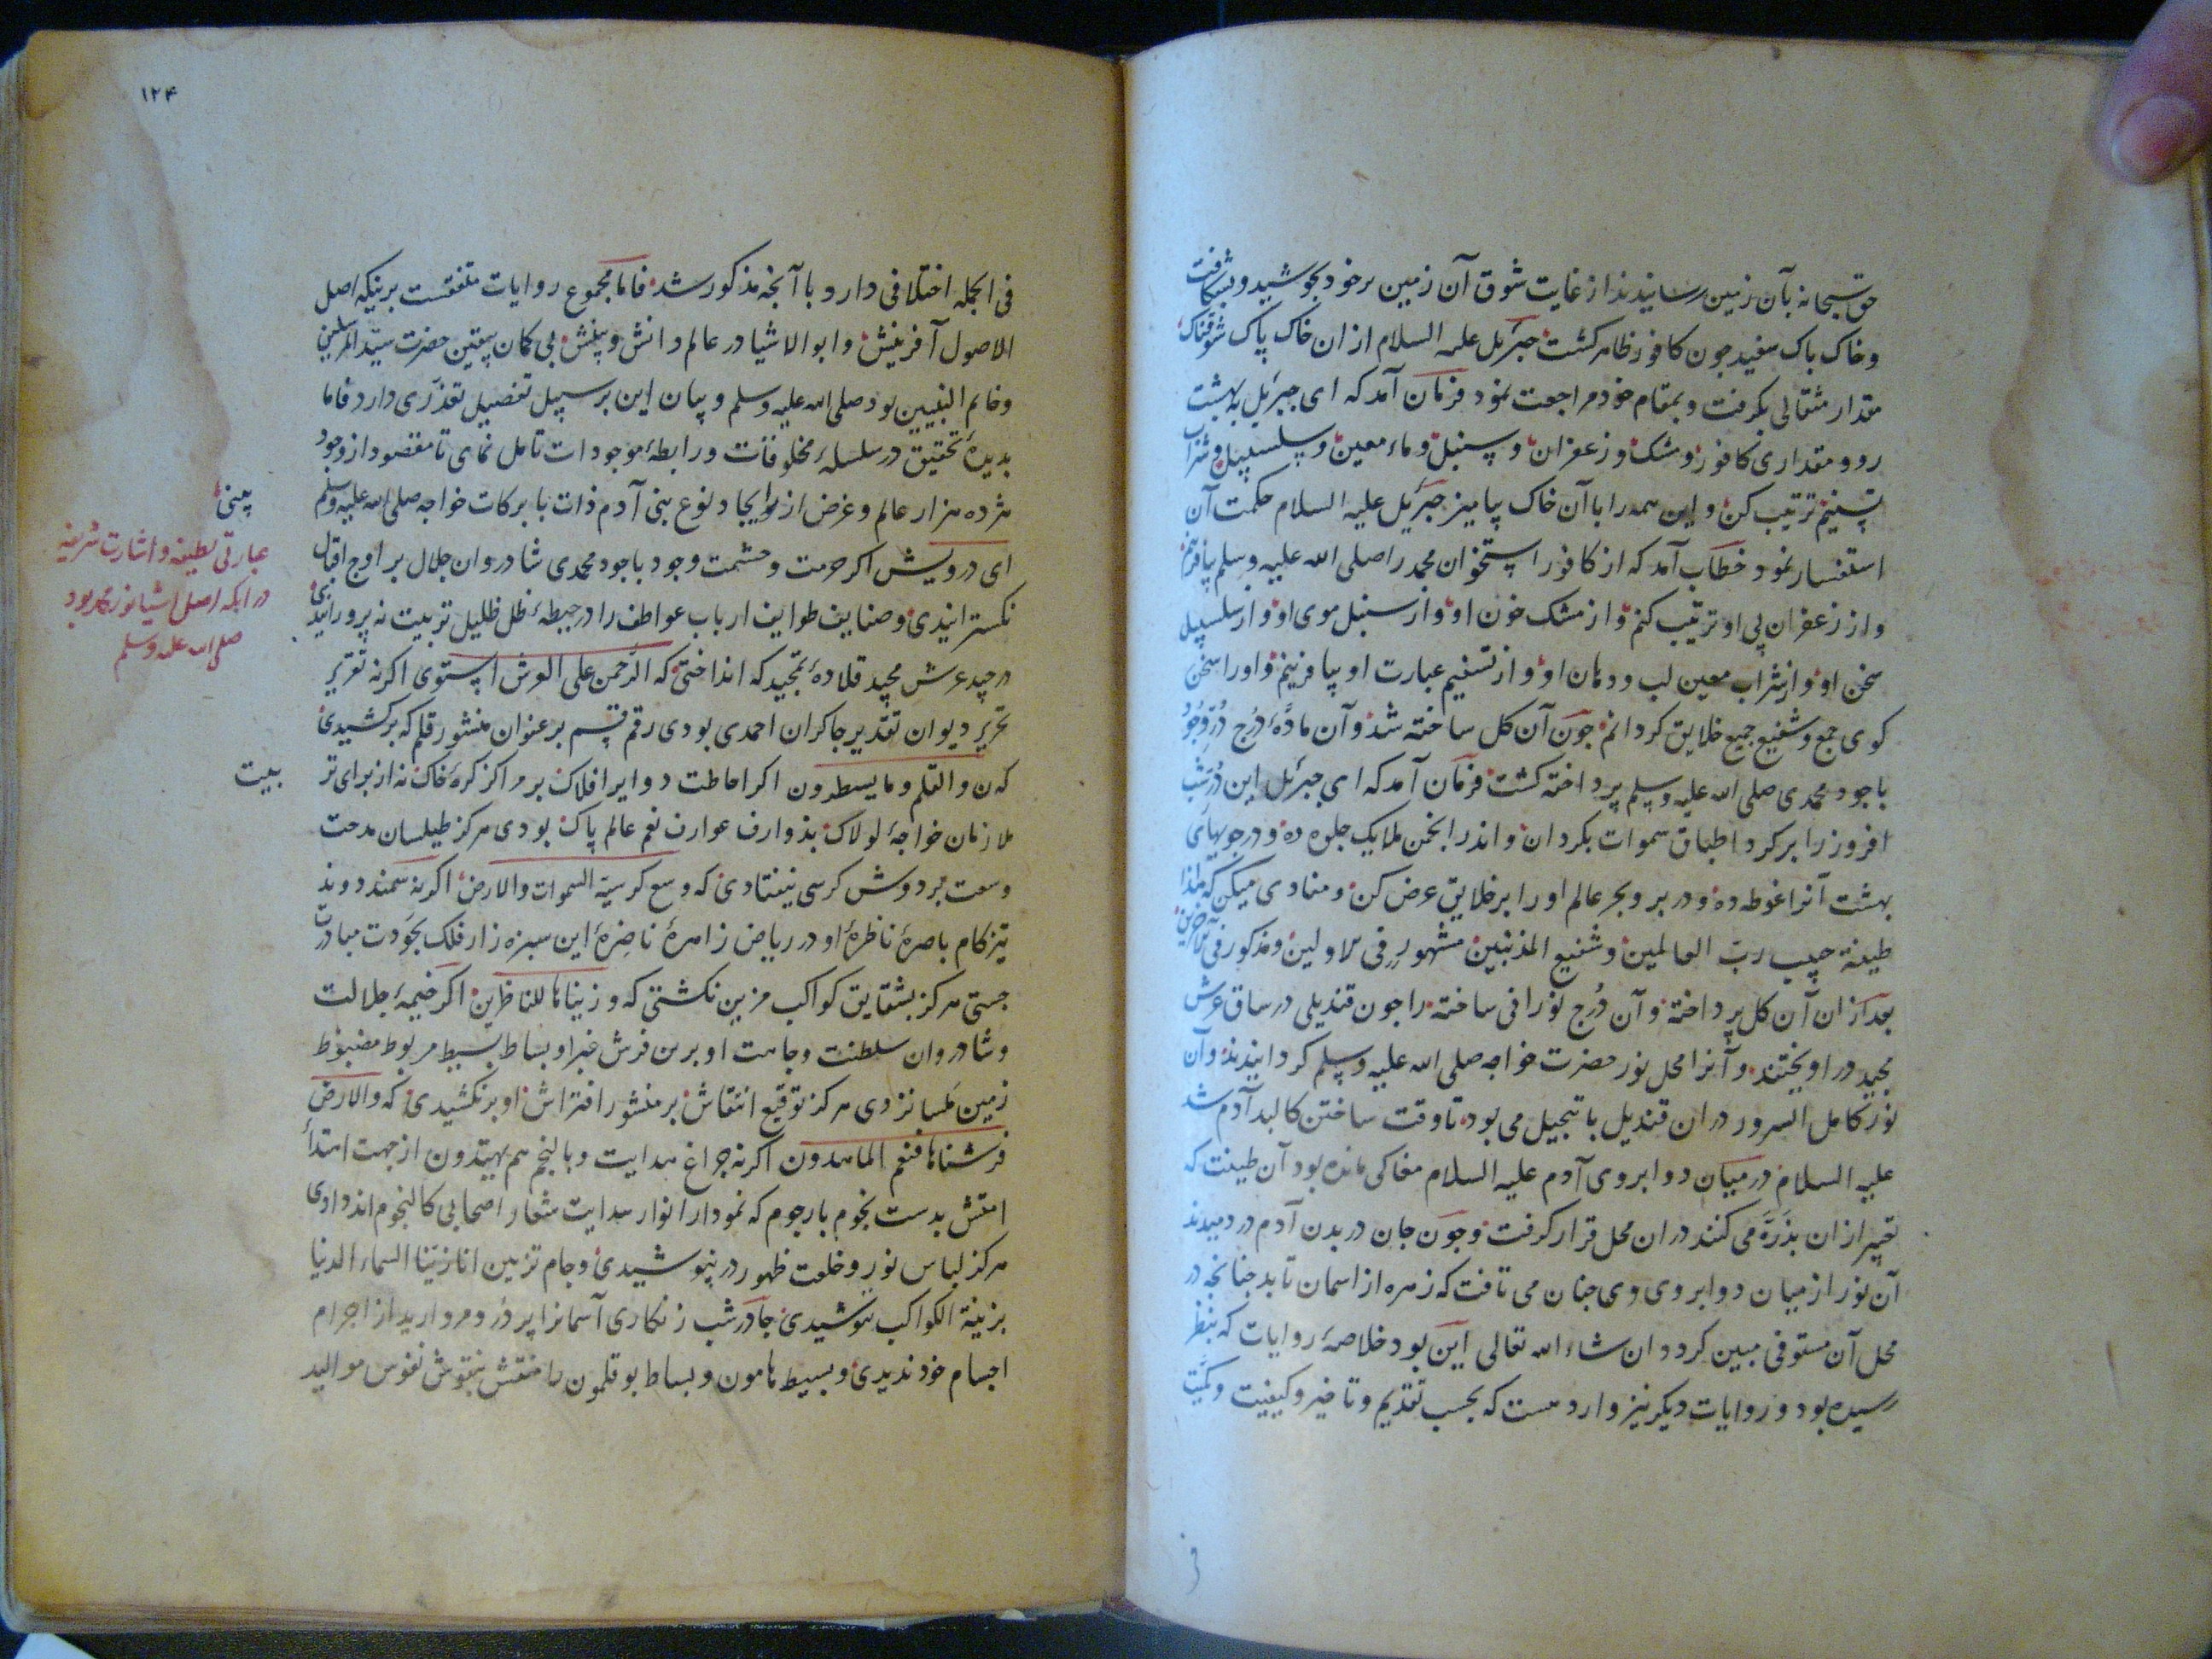 حق سبحانه بآن زمین رسانیدند از غایت شوق آن زمین برخود بجوشید و بشکافت
و خاک پاک سفید چون کافور ظاهر کشت جبرئیل علیه السلام از ان خاک پاک شوقناک
مقدار مثقالی بکرفت و بمقام خود مراجعت نمود فرمان آمد که ای جبرئیل به بهشت
رو و مقداری کافور و مشک و زعفران و سنبل و ماء معین و سلسبیل و شراب
تسنیم ترتیب کن و این همه را با آن خاک بیامیز جبرئیل علیه السلام حکمت آن
استفسار نمود خطاب آمد که از کافور استخوان محمد را صلی الله علیه وسلم بیافرینم
و از زعفران پی او ترتیب کنم و از مشک خون او و از سنبل موی او و از سلسبیل
سخن او و از شراب معین لب و دهان او و از تسنیم عبارت او بیافرینم و او را سخن
کوی جمع و شفیع جمیع خلایق کردانم چون آن کل ساخته شد و آن مادهٔ دُرج دُرّ وجود
باجود محمدی صلی الله علیه وسلم پرداخته کشت فرمان آمد که ای جبرئیل این دُرّ شب
افروز را برکرد اطباق سموات بکردان و اندر انجمن ملایک جلوه ده و در جویهای
بهشت آنرا غوطه ده و در بر و بحر عالم او را بر خلایق عرض کن و منادی میکن که هذا
طینة حبیب ربّ العالمین و شفیع المذنبین مشهور فی الاولین و مذکور فی الآخرین
بعد از ان آن کل پرداخته و آن دُرج نورانی ساخته را چون قندیلی در ساق عرش
مجید در اویختند و آنرا محل نور حضرت خواجه صلی الله علیه وسلم کردانیدند و آن
نور کامل السرور در ان قندیل با تبجیل می بود تا وقت ساختن کالبد آدم شد
علیه السلام در میان دو ابروی آدم علیه السلام مغاکی مانده بود آن طینت که
تعبیر ازان بذرّه می کنند در ان محل قرار کرفت و چون جان در بدن آدم در دمیدند
آن نور از میان دو ابروی وی چنان می تافت که زهره از اسمان تابد چنانچه در
محل آن مستوفی مبین کردد ان شاء الله تعالی این بود خلاصهٔ روایات که بنظر
رسیده بود و روایات دیکر نیز وارد هست که بحسب تقدیم و تاخیر و کیفیت و کمیّت
۱۲۴
فی الجمله اختلافی دارد با آنچه مذکور شد فاما مجموع روایات متفقست برینکه اصل
الاصول آفرینش و ابو الاشیا در عالم دانش و بینش بی کمان بیقین حضرت سیّد المرسلین
و خاتم النبیین بود صلی الله علیه وسلم و بیان این بر سبیل تفصیل تعذّری دارد فاما
بدیدهٔ تحقیق در سلسلهٔ مخلوقات و رابطهٔ موجودات تامل نمای تا مقصود از وجود
هژده هزار عالم و غرض از ایجاد نوع بنی آدم ذات بابرکات خواجه صلی الله علیه وسلم
ای درویش اکر حرمت و حشمت وجود باجود محمدی شادروان جلال بر اوج اقبال
نکسترانیدی و صنایف طوایف ارباب عواطف را در حیطهٔ ظل ظلیل تربیت نه پرورانیدی
در جید عرش مجید قلادهٔ تمجید که انداختی که الرّحمن علی العرش استوی اکر نه تقریر
تحریر دیوان تقدیر چاکران احمدی بودی رقم قسم بر عنوان منشور قلم که برکشیدی
که ن والقلم وما یسطرون اکر احاطت دوایر افلاک بر مراکز کرهٔ خاک نه از برای تر
ملازمان خواجهٔ لولاک بذوارف عوارف نعم عالم پاک بودی هرکز طیلسان مدحت
وسعت بر دوش کرسی نیفتادی که وسع کرسیه السموات والارض اکر نه سمند دونده
تیز کام باصرهٔ ناظرهٔ او در ریاض زاهرهٔ ناضرهٔ این سبزه زار فلک بجودت مبادرت
جستی هرکز بشقایق کواکب مزین نکشتی که و زیناها للناظرین اکر خیمهٔ جلالت
و شادروان سلطنت وجاهت او برین فرش غبرا و بساط بسیط مربوط مضبوط
زمین ملسا نزدی هرکز توقیع انتقاش بر منشور افتراش او برنکشیدی که والارض
فرشناها فنعم الماهدون اکر نه چراغ هدایت و بالنجم هم یهتدون از جهت اهتدأ
امتش بدست نجوم بارجوم که نمودار انوار هدایت شعار اصحابی کالنجوم اند دادی
هرکز لباس نور و خلعت ظهور در نپوشیدی و جام تزیین انا زیّنا السماء الدنیا
بزینة الکواکب ننوشیدی چادر شب زنکاری آسمانرا پر درّ و مروارید از اجرام
اجسام خود ندیدی و بسیط هامون و بساط بوقلمون را منقش بنقوش نفوس موالید
عبارتی لطیفه و اشارت شریفه
در انکه اصل اشیا نور محمد بود
صلی الله علیه وسلم
بیت